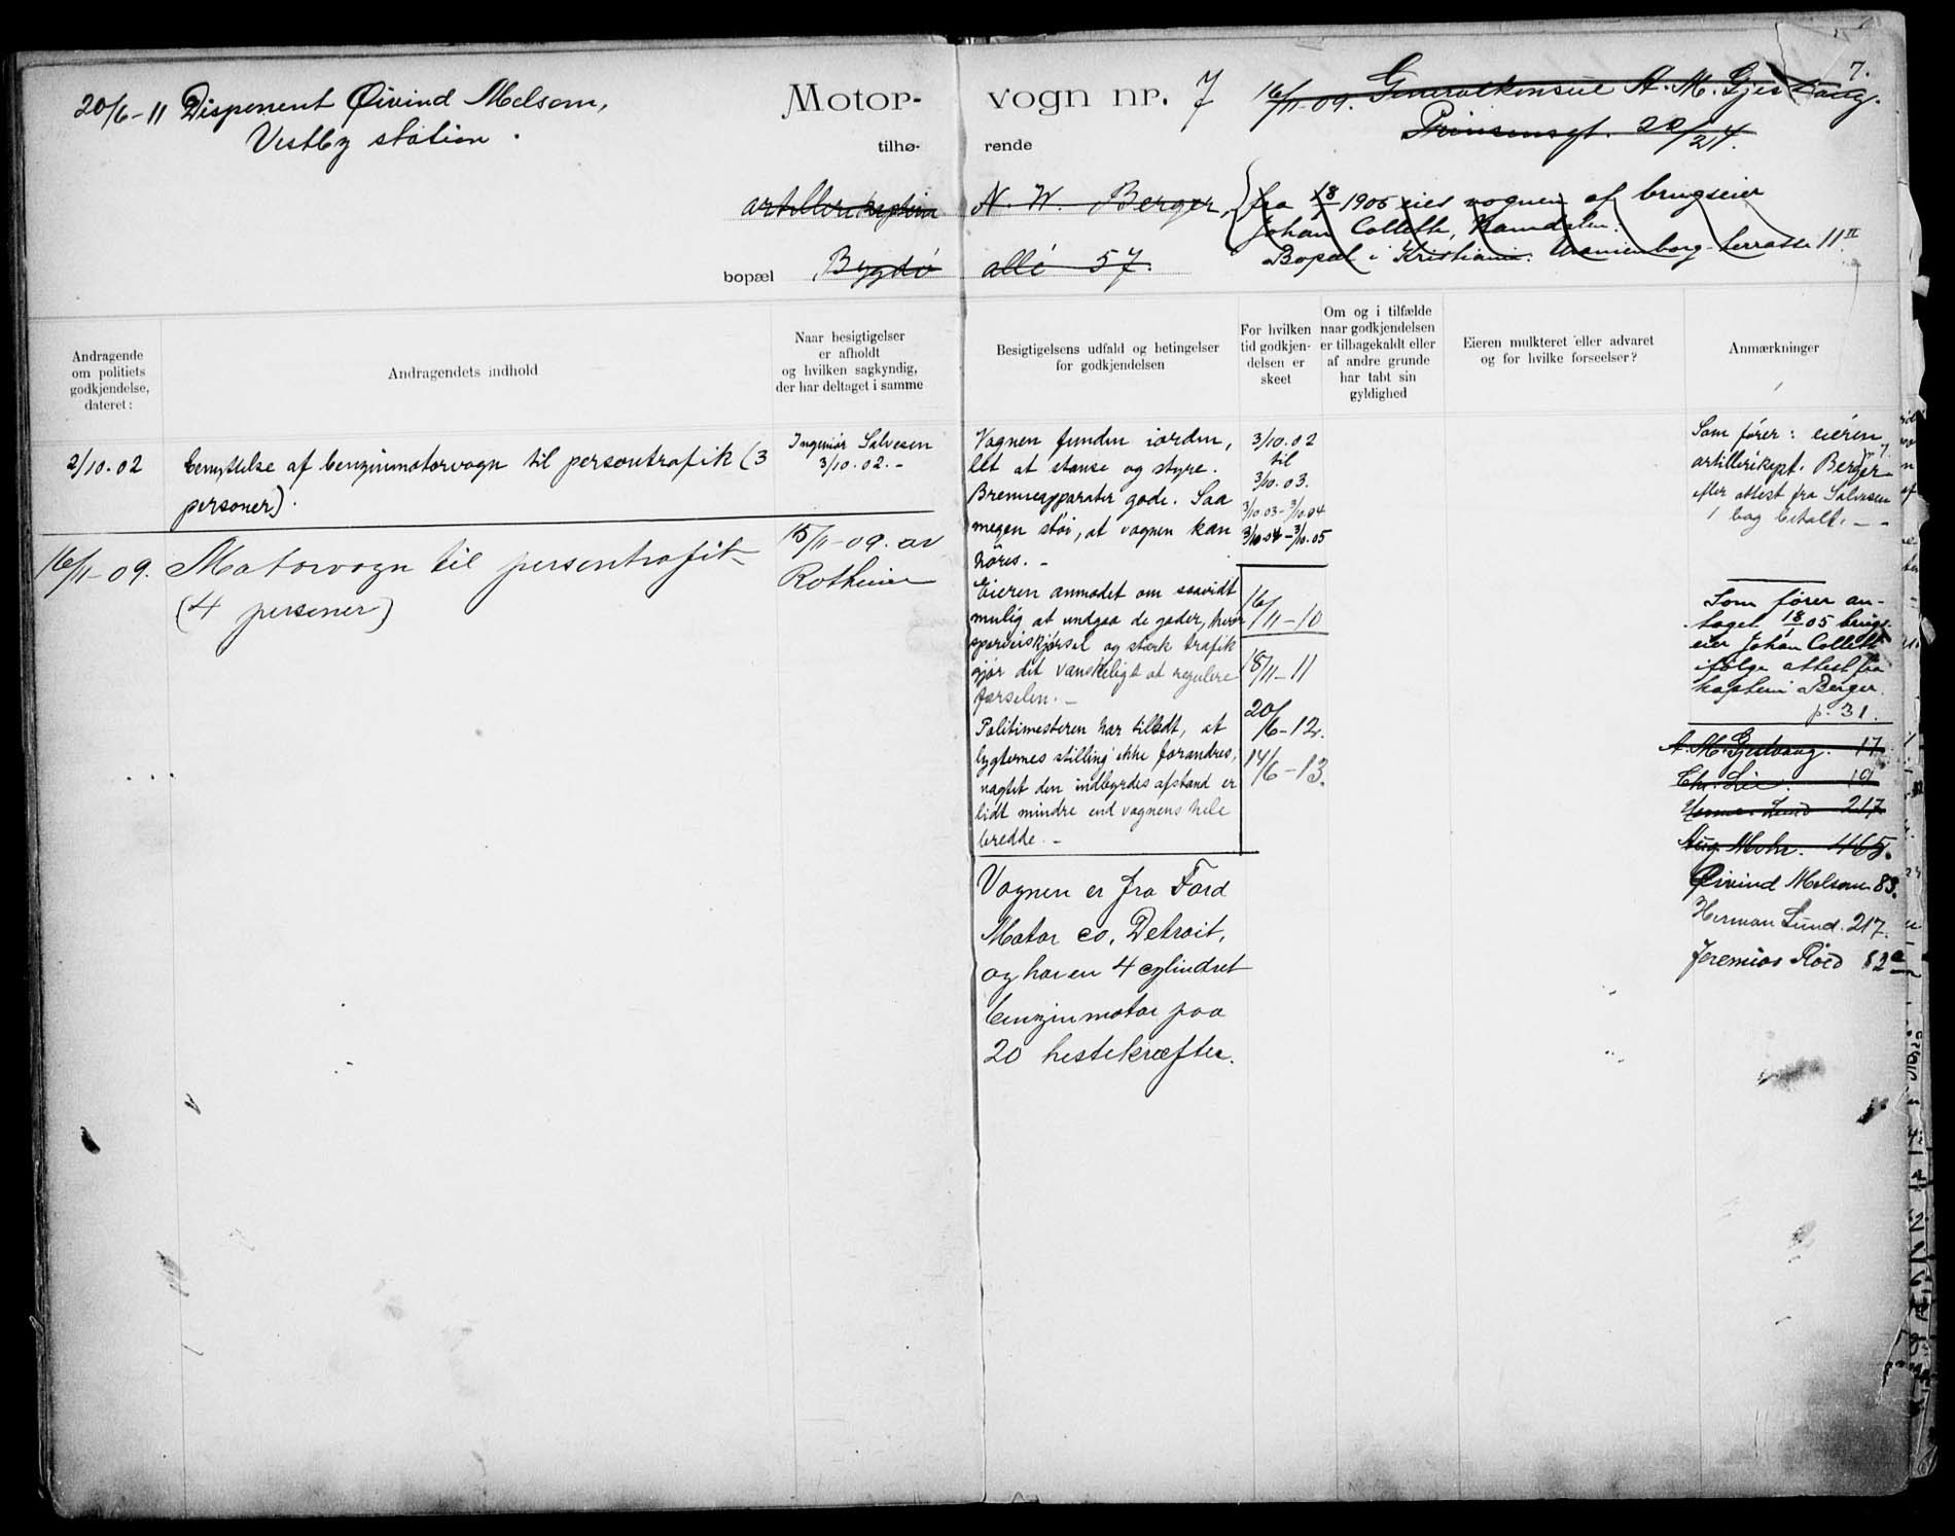 7.
20/6-11 Disponent Øivind Melsom,
Vestby station.
Motor-vogn nr. 7
16/11-09. Generalkonsul A. M. Gjestvang.
Prinsensgt. 22/24.
tilhørende
artillerikaptein N. W. Berger,
fra 18 1905 eies vognen af brugseier
Johan Collett, Namdalen.
Bopæl i Kristiania: Uranienborg terrasse 11 II
bopæl Bygdø allé 57.
Andragende
om politiets
godkjendelse,
dateret:
Andragendets indhold
Naar besigtigelser
er afholdt
og hvilken sagkyndig,
der har deltaget i samme
Besigtigelsens udfald og betingelser
for godkjendelsen
For hvilken
tid godkjen-
delsen er
skeet
Om og i tilfælde
naar godkjendelsen
er tilbagekaldt eller
af andre grunde
har tabt sin
gyldighed
Eieren mulkteret eller advaret
og for hvilke forseelser?
Anmærkninger
2/10.02
Benyttelse af benzinmotorvogn til persontrafik (3
personer).
Ingeniør Salvesen
3/10.02.-
Vognen funden iorden,
let at stanse og styre.
Bremseapparater gode. Saa
megen støi, at vognen kan
høres. -
Eieren anmodet om saavidt
mulig at undgaa de gader, hvor
sporveiskjørsel og stærk trafik
gjør det vanskeligt at regulere
færselen. -
Politimesteren har tilladt, at
lygternes stilling ikke forandres,
uagtet den indbyrdes afstand er
lidt mindre end vognens hele
bredde. -
3/10.02
til
3/10.03.
3/10.03-3/10.04
3/10.04-3/10.05
16/11-10
18/11-11
20/6-12.
14/6-13.
Som fører: eieren
artillerikapt. Berger p. 7.
efter attest fra Salvesen
1 bog betalt. - -
Som fører an-
taget 18 05 brugs-
eier Johan Collett
ifølge attest fra
kaptein Berger.
p. 31.
A. M. Gjestvang. 17.
Chr. Lie. 19
Herman Lund 217
Aug. Mohr. 465.
Øivind Melsom 83.
Herman Lund. 217.
Jeremias Röed 82
16/11-09.
Motorvogn til persontrafik
(4 personer)
15/11-09. av
Rotheim
Vognen er fra Ford
Motor co, Detroit,
og har en 4 cylindret
benzinmotor paa
20 hestekræfter.